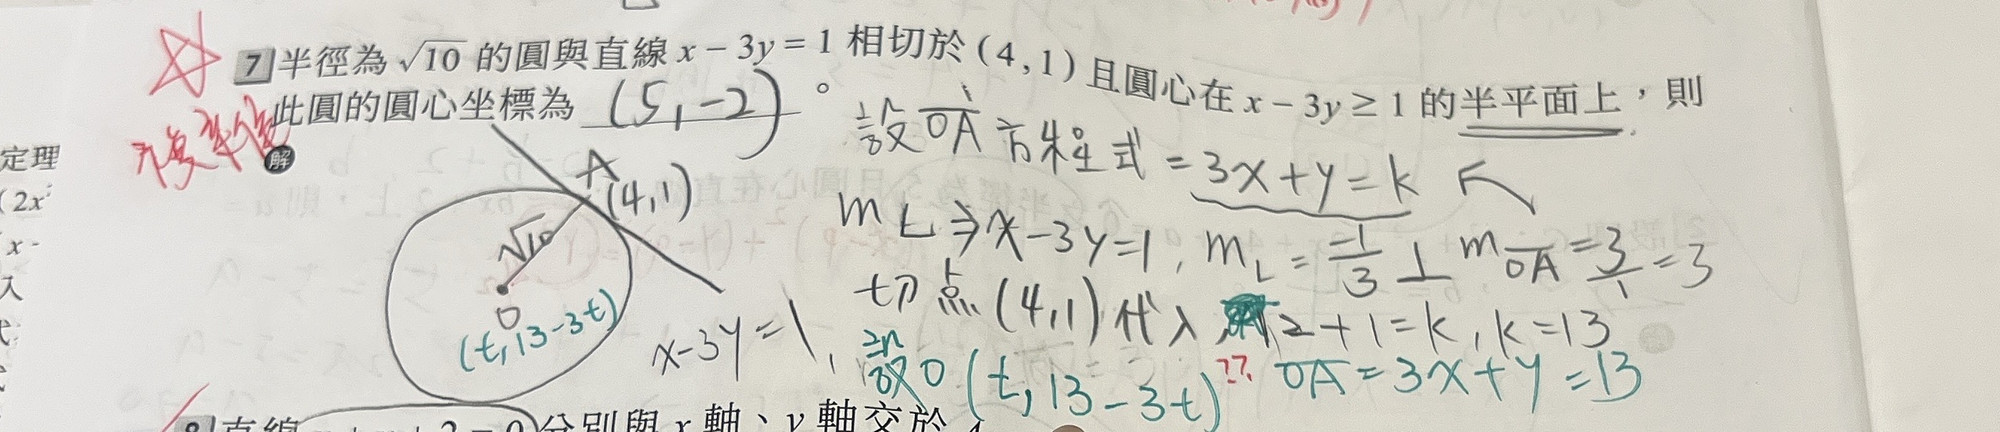 7 半徑為 √10 的圓與直線 x − 3y = 1 相切於 (4, 1) 且圓心在 x − 3y ≥ 1 的半平面上，則
此圓的圓心坐標為 (5, -2) 。
設 OA 方程式 = 3x + y = k
解
A
(4,1)
√10
O
(t, 13-3t)
x-3y=1
m L ⇒ x-3y=1, m L = -1/3 ⊥ m OA = 3/1 = 3
切点 (4,1) 代入 12+1=k, k=13
設 O (t, 13-3t) ??. OA = 3x+y=13
定理
(2x²
x -
入
8 直線 分別與 x 軸、y 軸交於